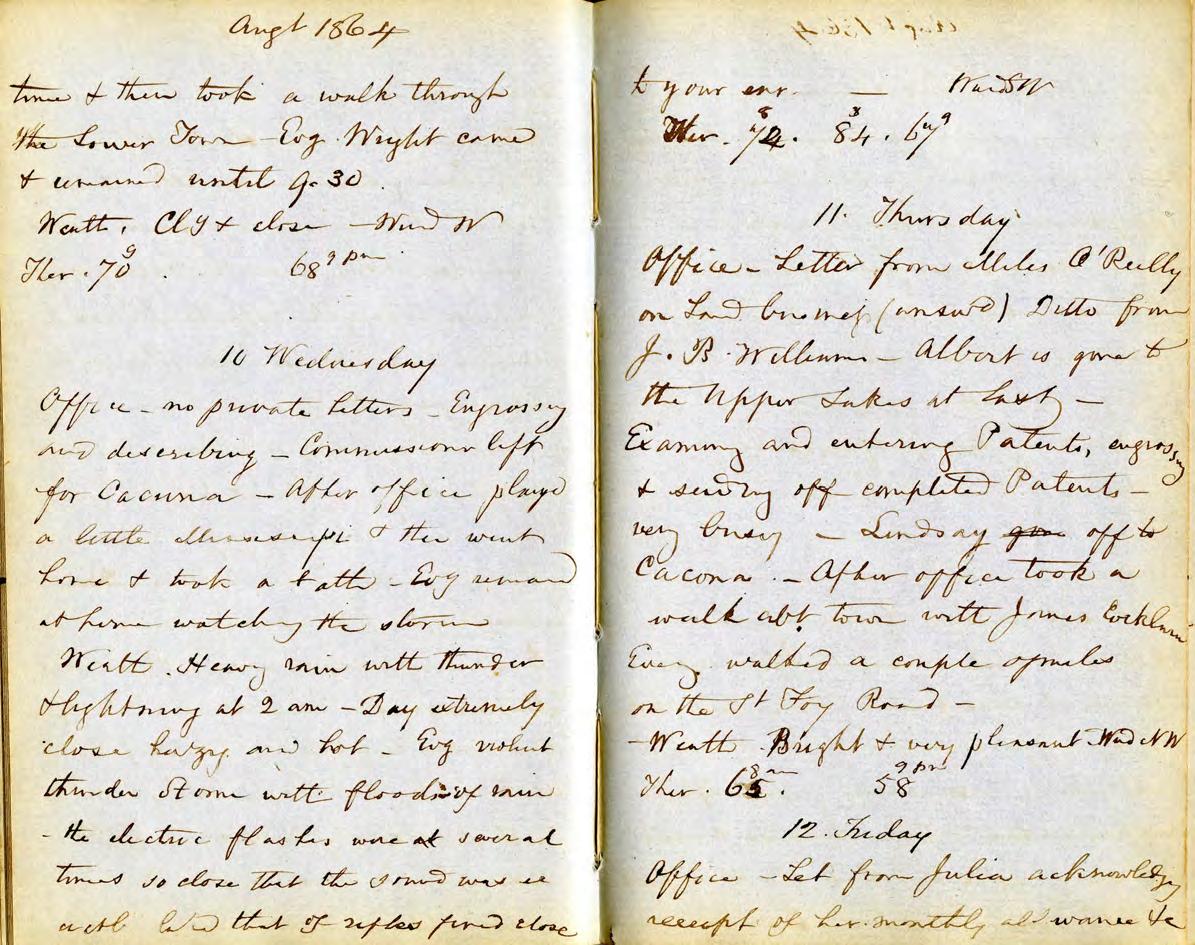 Augt 1864
time & then took a walk through
the Lower Town - Evg. Wright came
& remained until 9.30.
Weath. Cldy & close - Wind W
Ther. 70 9 68 9 pm
10 Wednesday
Office - no private letters - Engrossing
and describing - Commissioner left
for Cacouna - After office played
a little Mississippi & then went
home & took a bath - Evg remained
at home watching the storm
Weath. Heavy rain with thunder
& lightning at 2 am - Day extremely
close hazy and hot - Evg violent
thunder Storm with floods of rain
- the electric flashes were at several
times so close that the sound was
that of rifles fired close
to your ear. - Wind SW
Ther. 72 8 84 3 67 9
11. Thursday
Office - Letter from Miles O'Reilly
on Land business (answd) Ditto from
J. B. Williams - Albert is gone to
the Upper Lakes at last -
Examing and entering Patents, engrossg
& sending off completed Patents -
very busy - Lindsay gone off to
Cacona. - After office took a
walk abt. town with James Cockburn
Eveng. walked a couple of miles
on the St Foy Road -
- Weath. Bright & very pleasant Wind NW
Ther. 65 8 am 58 9 pm
12. Friday
Office - Let from Julia acknowledg
receipt of her monthly allowance &c